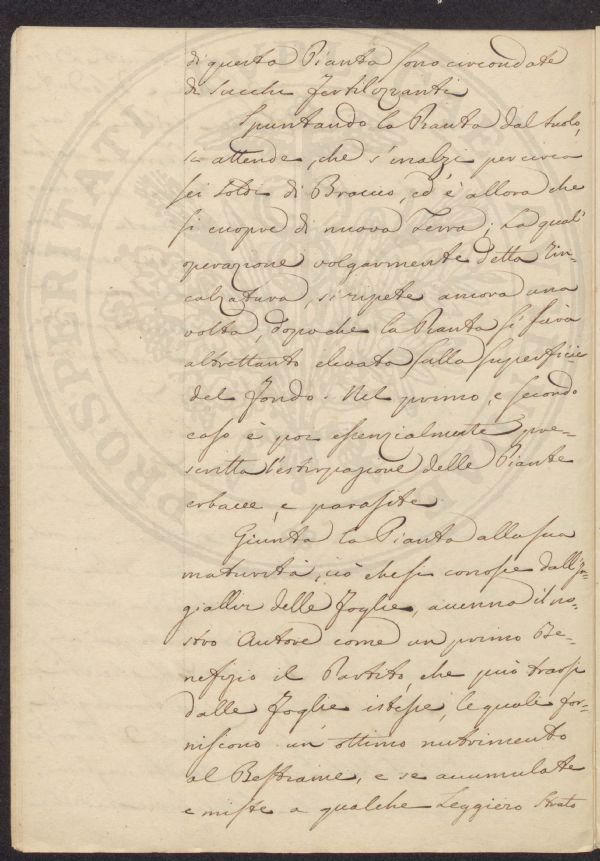 di questa Pianta sono circondate
di succhi fertilizzanti
Spuntando la Pianta dal suolo,
si attende, che s'inalzi per circa
sei soldi di Braccio, ed è allora che
si cuopre di nuova Terra; La qual'
operazione volgarmente detta Rin-
calzatura, si ripete ancora una
volta, dopo che la Pianta si sarà
altrettanto elevata sulla superficie
del Fondo. Nel primo, e secondo
caso è poi essenzialmente pre-
scritta l'estirpazione delle Piante
erbacee, e parasite.
Giunta la Pianta alla sua
maturità, ciò che si conosce dall'in-
giallir delle Foglie, accenna il no-
stro Autore come un primo Be-
nefizio il Partito, che può trarsi
dalle Foglie istesse, le quali for-
niscono un'ottimo nutrimento
al Bestiame, e se accumulate
e miste a qualche Leggiero strato
PROSPERITATI PUBLICAE